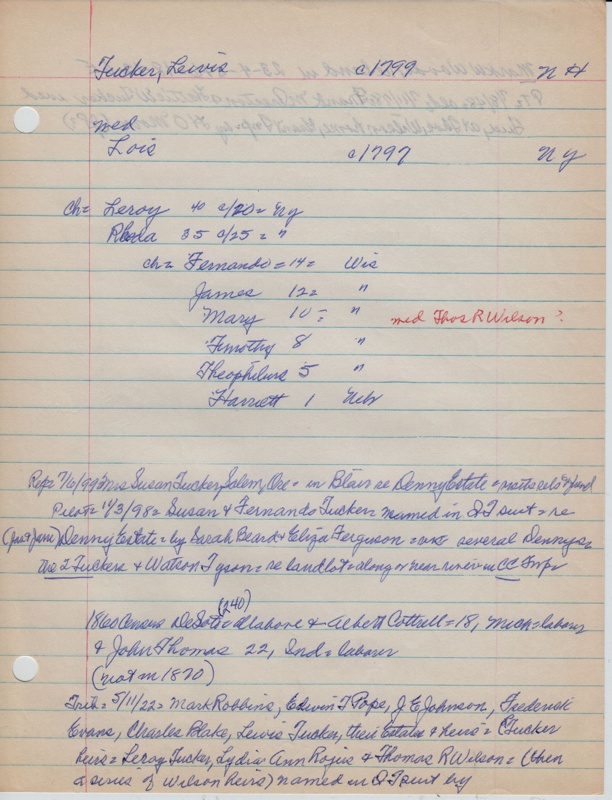 Tucker, Lewis c1799 N H
med
Lois c1797 Ny
ch= Leroy 40 c/20= Ny
Rhoda 35 c/25 = "
ch= Fernando = 14 = Wis
James 12= "
Mary 10 = " med Thos R Wilson ?
Timothy 8 "
Theophilus 5 "
Harriett 1 Neb
Rep= 7/6/99 Mrs Susan Tucker, Salem, Ore = in Blair re Denny Estate = visits rels & fund
Pilot= 11/3/98= Susan & Fernando Tucker named in QT suit = re
Denny Estate = by Sarah Beard & Eliza Ferguson = several Dennys =
the 2 Tuckers & Watson Tyson = re land lot = along or near river in CC Twp=
(240)
1860 Census DeSoto = all above & Albert Cottrell = 18, Mich = laborer
& John Thomas 22, Ind = laborer
(not in 1870)
Trib = 5/11/22 = Mark Robbins, Edwin T Pope, J E Johnson, Frederick
Evans, Charles Blake, Lewis Tucker, their Estates & heirs = (Tucker
heirs = Leroy Tucker, Lydia Ann Rojus & Thomas R Wilson = (then
a series of Wilson heirs) named in QT suit by